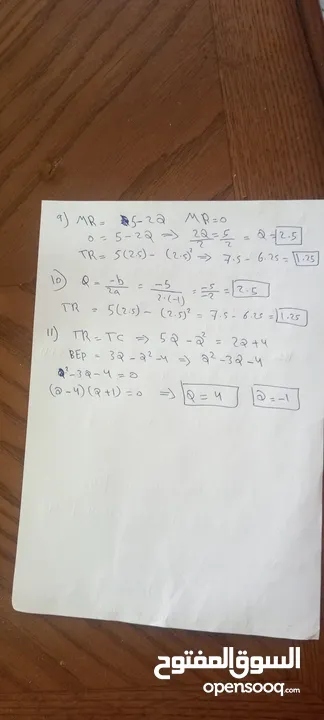 9) MR = 5 - 2Q MR = 0
0 = 5 - 2Q ⇒ 2Q/2 = 5/2 = Q = 2.5
TR = 5(2.5) - (2.5)² ⇒ 7.5 - 6.25 = 1.25
10) Q = -b/2a = -5/2·(-1) = -5/-2 = 2.5
TR = 5(2.5) - (2.5)² = 7.5 - 6.25 = 1.25
11) TR = TC ⇒ 5Q - Q² = 2Q + 4
BEP = 3Q - Q² - 4 ⇒ Q² - 3Q - 4
Q² - 3Q - 4 = 0
(Q - 4)(Q + 1) = 0 ⇒ Q = 4 Q = -1
السوق المفتوح
opensooq.com